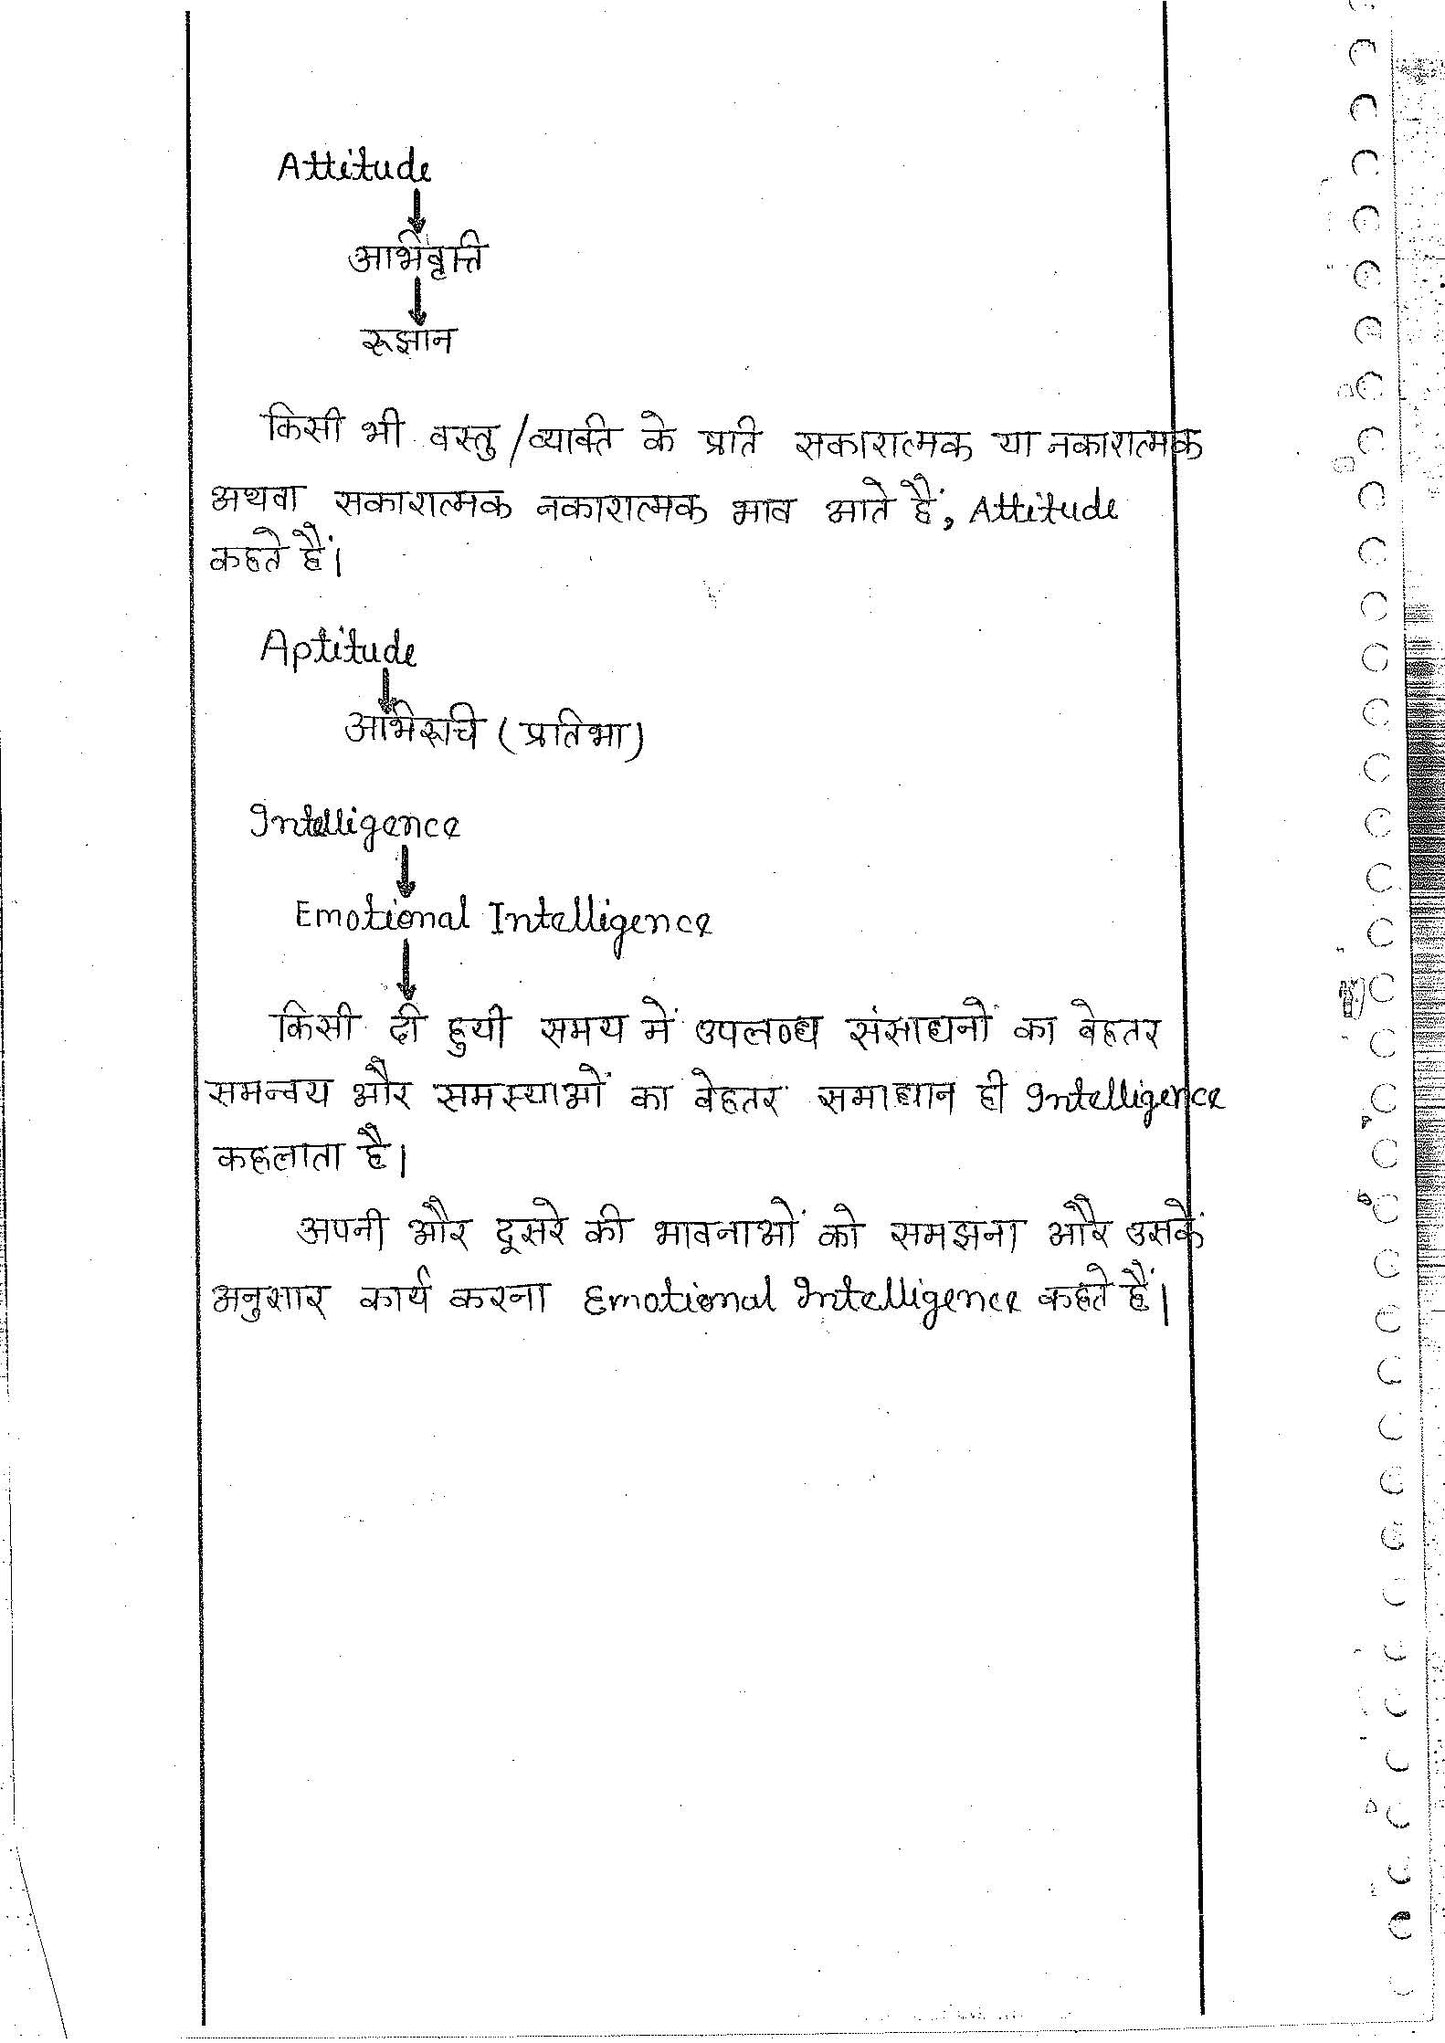 Attitude
अभिवृत्ति
रूझान
किसी भी वस्तु/व्यक्ति के प्रति सकारात्मक या नकारात्मक
अथवा सकारात्मक नकारात्मक भाव आते हैं, Attitude
कहते हैं।
Aptitude
अभिरूचि (प्रतिभा)
Intelligence
Emotional Intelligence
किसी दी हुयी समय में उपलब्ध संसाधनों का बेहतर
समन्वय और समस्याओं का बेहतर समाधान ही Intelligence
कहलाता है।
अपनी और दूसरे की भावनाओं को समझना और उसकें
अनुसार कार्य करना Emotional Intelligence कहते हैं।